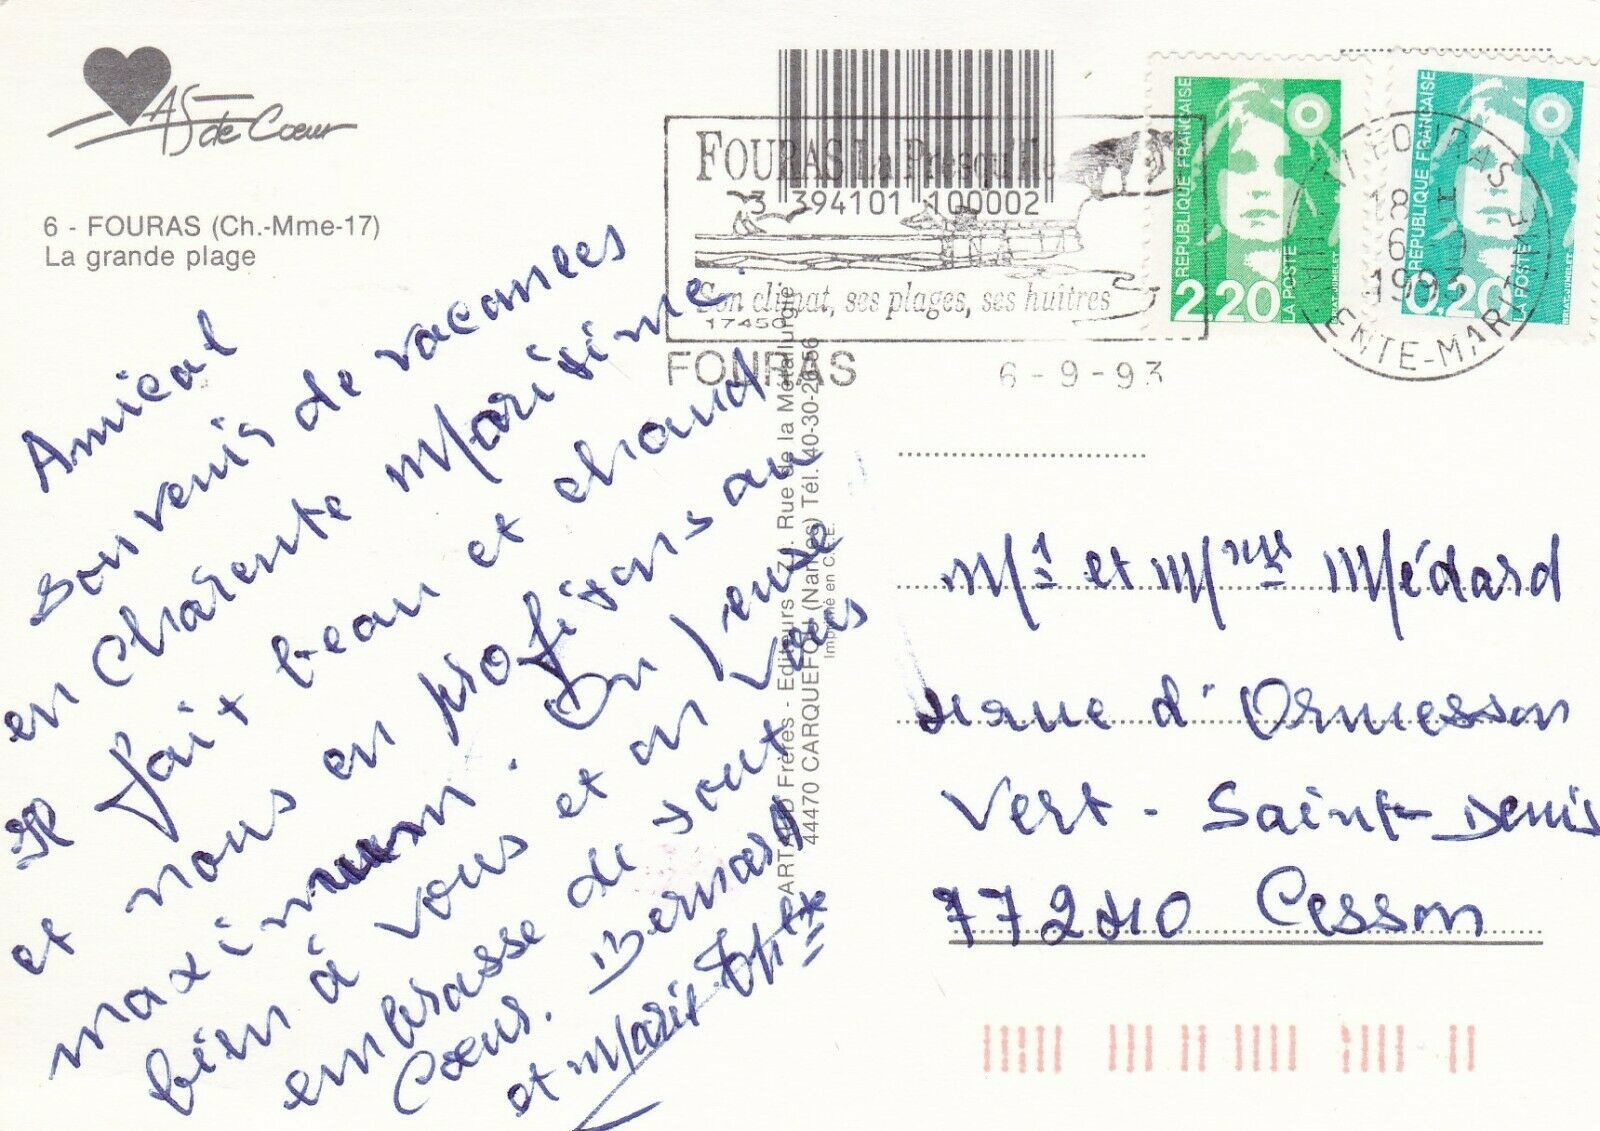 As de Coeur
6 - FOURAS (Ch.-Mme-17)
La grande plage
Amical
souvenir de vacances
en Charente Maritime.
Il fait beau et chaud
et nous en profitons au
maximum. On pense
bien à vous et on vous
embrasse de tout
Coeur. Bernard
et Marie
ARTAUD Frères - Editeurs Z.I. Rue de la Métallurgie
44470 CARQUEFOU (Nantes) Tél. 40-30-26-56
Imprimé en C.E.E.
3 394101 100002
FOURAS La Presqu'île
Son climat, ses plages, ses huîtres
17450
FOURAS
6-9-93
REPUBLIQUE FRANÇAISE
2,20
LA POSTE
REPUBLIQUE FRANÇAISE
0,20
LA POSTE
17 FOURAS
18H
6-9
1993
CHARENTE-MARITIME
Mr et Mme Médard
d'Ormesson
Vert-Saint-Denis
77240 Cesson